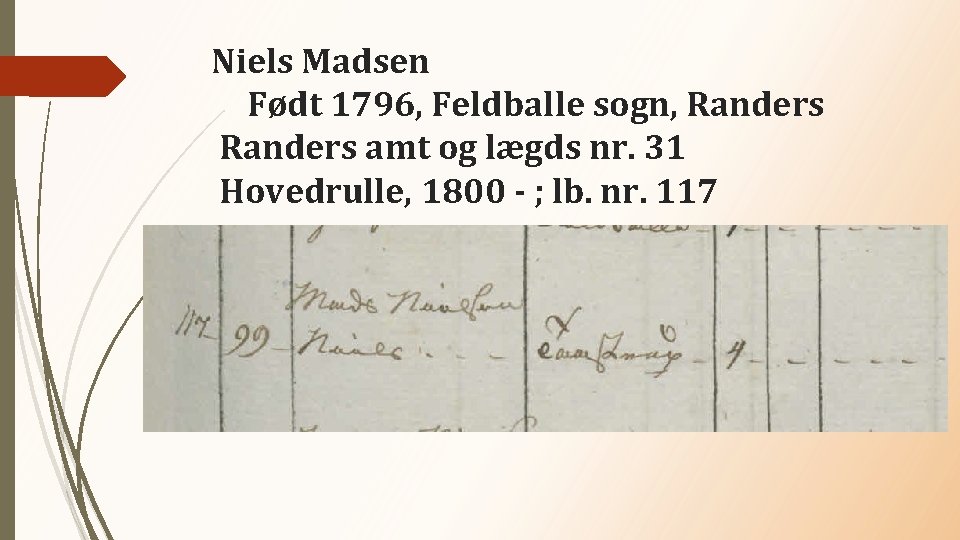 Niels Madsen
Født 1796, Feldballe sogn, Randers
Randers amt og lægds nr. 31
Hovedrulle, 1800 - ; lb. nr. 117
Mads Nielsen
117 99 - Niels . - - - 4 - - - - - -